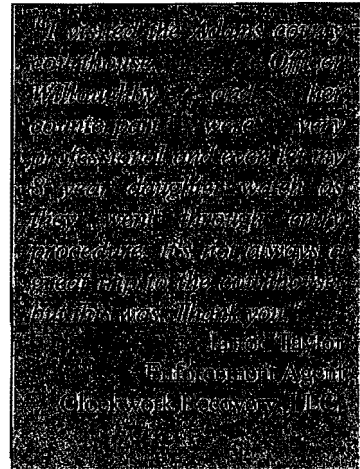 "I visited the Adams county
courthouse. Officer
Willoughby and her
counterpart were very
professional and even let my
8 year daughter watch as
they went through
procedure. It's not always a
great trip to the courthouse,
but this was. Thank you."
Taylor
Enforcement Agent
Clockwork Recovery, LLC